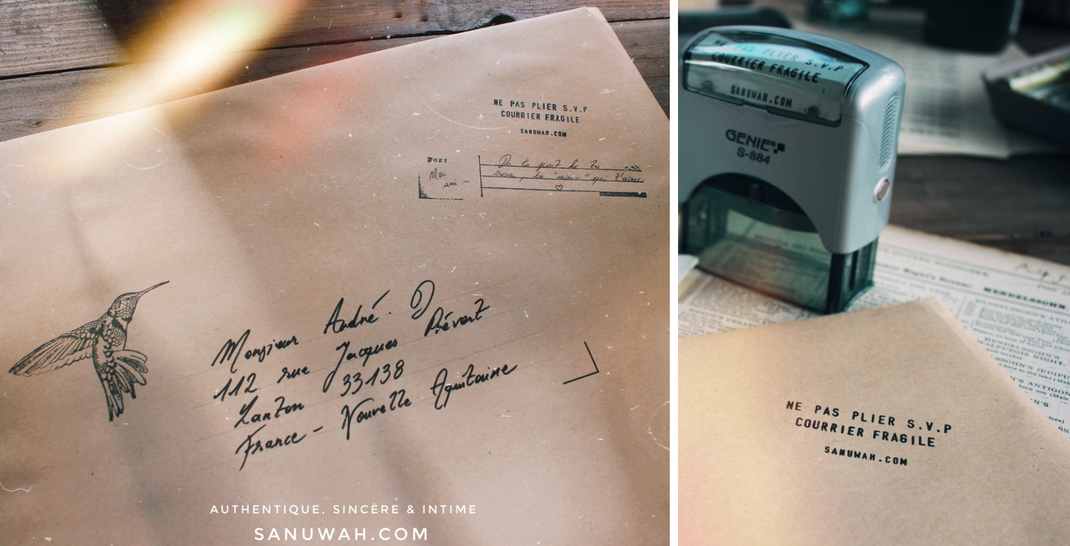 NE PAS PLIER S.V.P
COURRIER FRAGILE
SANUWAH.COM
For:
Mon
ami -
De la part de ta
"qui t'aime
Monsieur André. D
112 rue Jacques Prévert
Lanton 33138
France - Nouvelle Aquitaine
AUTHENTIQUE, SINCÈRE & INTIME
SANUWAH.COM
NE PAS PLIER S.V.P
COURRIER FRAGILE
SANUWAH.COM
GENIE
S-884
MENDELSSOHN
NE PAS PLIER S.V.P
COURRIER FRAGILE
SANUWAH.COM